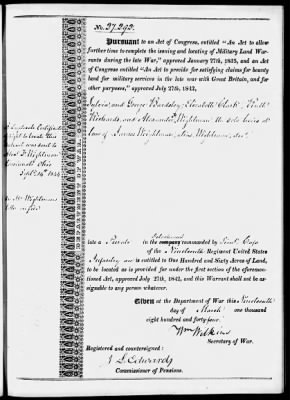 No. 27.293.
Pursuant to an Act of Congress, entitled "An Act to allow
further time to complete the issuing and locating of Military Land War-
rants during the late War," approved January 27th, 1835, and an Act
of Congress entitled "An Act to provide for satisfying claims for bounty
land for military services in the late war with Great Britain, and for
other purposes," approved July 27th, 1842,
and George Beardsley, Clark,
Richards, and Alexander Wightman the sole heirs at
law of James Wightman, alias, Wightman, decd.
A Duplicate Certificate
of right to locate this
warrant was sent to
Alex. F. Wightman
Cincinnati Ohio
Sept. 16th 1844
Mr. Wightmans
letter on file
late a Private in the company commanded by
of the Nineteenth Regiment United States
Infantry is entitled to One Hundred and Sixty Acres of Land,
to be located as is provided for under the first section of the aforemen-
tioned Act, approved July 27th, 1842, and this Warrant shall not be as-
signable to any person whatever.
Given at the Department of War this Nineteenth
day of March one thousand
eight hundred and forty-four.
Wm Wilkins
Secretary of War.
Registered and countersigned:
J L Edwards
Commissioner of Pensions.